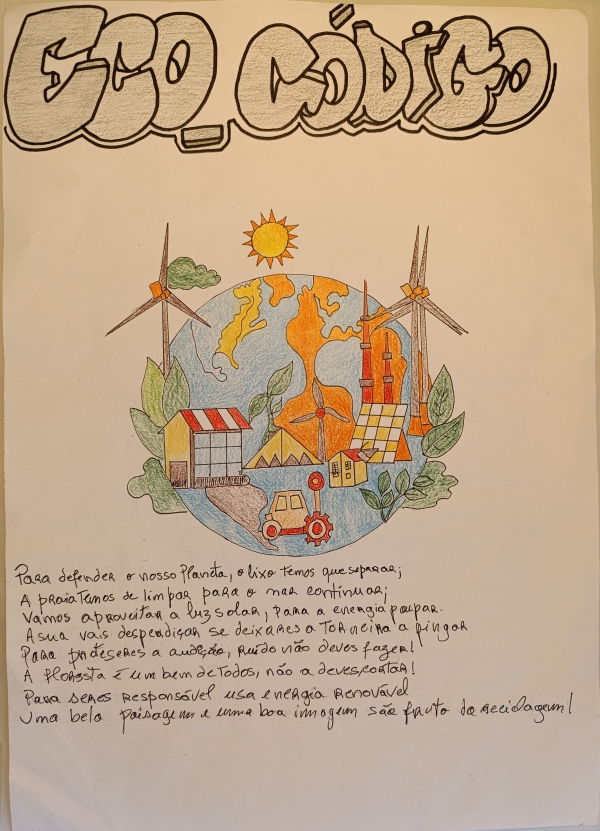 ECO CÓDIGO
Para defender o nosso Planeta, o lixo temos que separar;
A praia Temos de limpar para o mar continuar;
Vamos aproveitar a luz solar, para a energia poupar.
A sua vais despendiçar se deixares a Torneira a pingar
Para protegeres a audição, Ruído não deves fazer!
A Floresta é um bem de Todos, não a deves cortar!
Para seres Responsável usa energia Renovável
Uma bela paisagem e uma boa imagem são fruto da reciclagem!